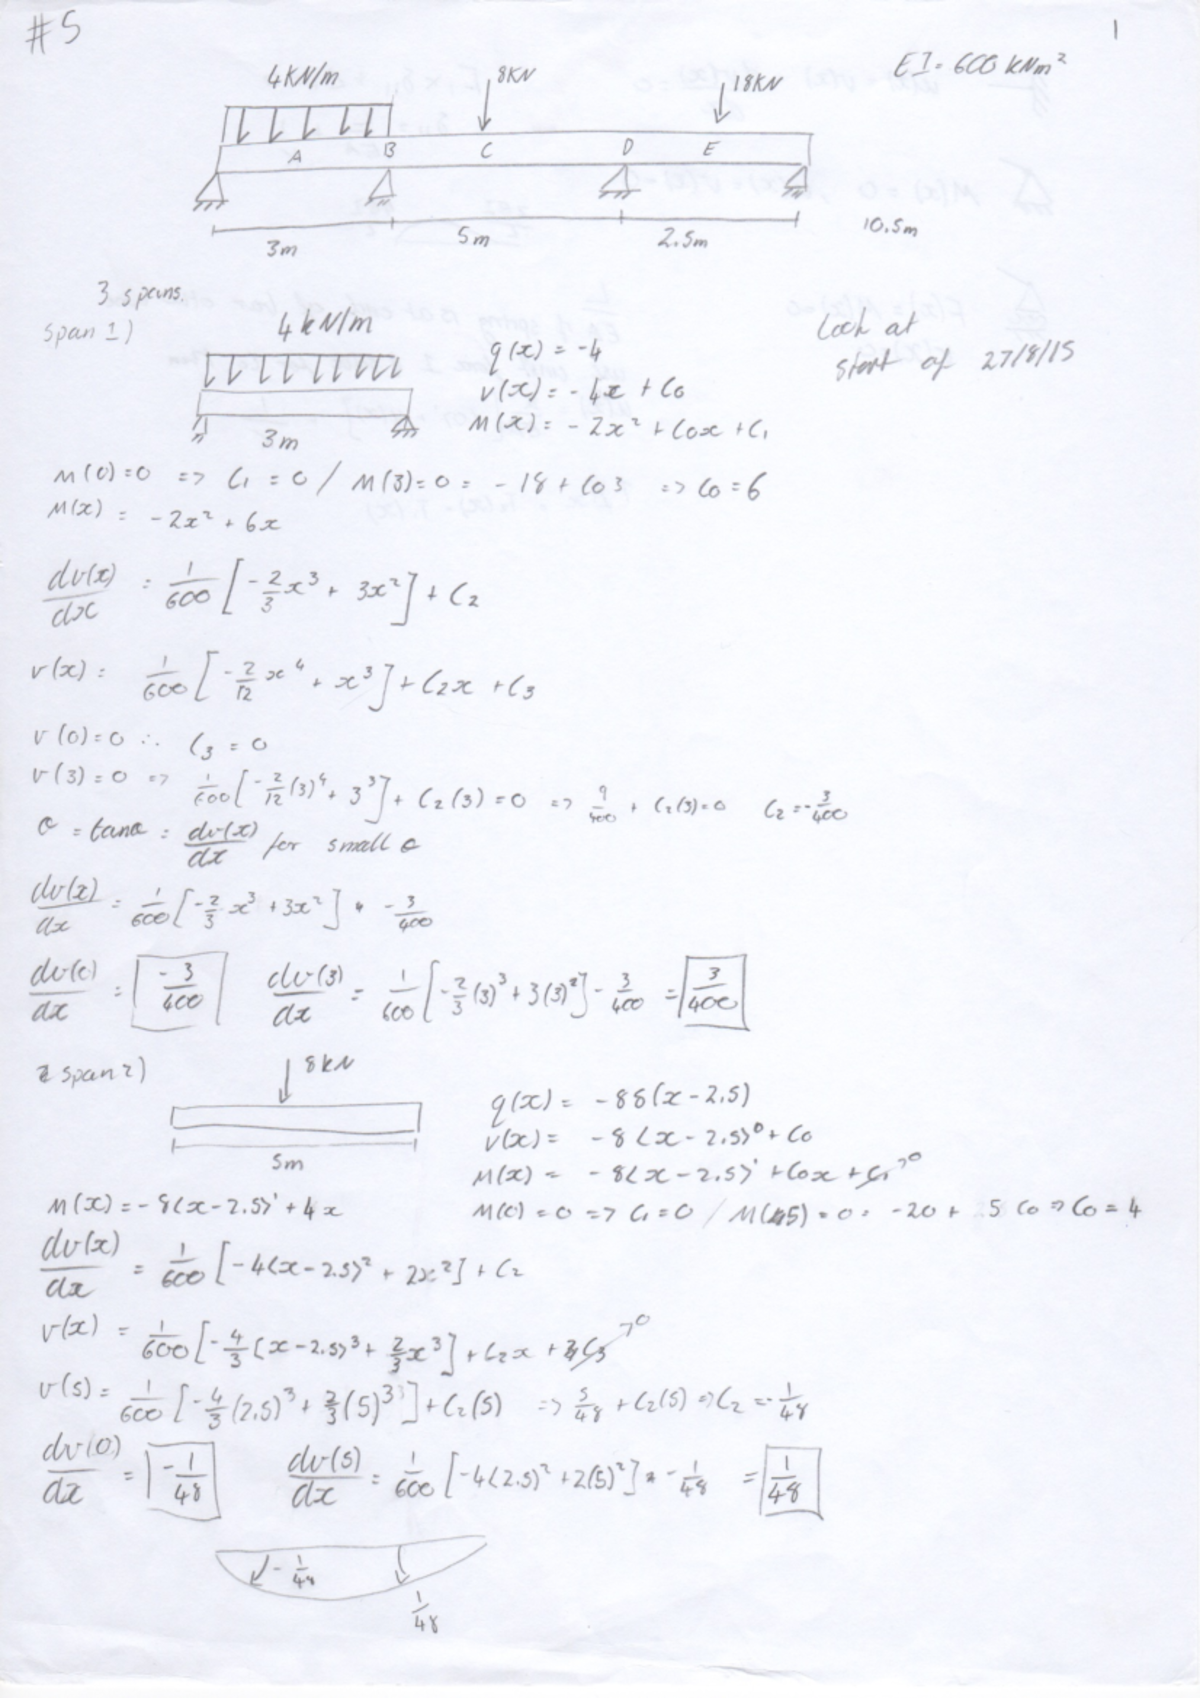 #5
1
EI = 600 kNm²
4KN/m
8KN
18KN
A B C D E
3m 5m 2.5m 10.5m
3 spans.
span 1)
4kN/m
3m
q(x) = -4
v(x) = -4x + C0
M(x) = -2x² + C0x + C1
Look at
start of 27/8/15
M(0)=0 => C1 = 0 / M(3)=0 = -18 + C03 => C0=6
M(x) = -2x² + 6x
dv(x)/dx = 1/600 [-2/3x³ + 3x²] + C2
v(x) = 1/600 [-2/12 x⁴ + x³] + C2x + C3
v(0)=0 ∴ C3 = 0
v(3)=0 => 1/600 [-2/12(3)⁴ + 3³] + C2(3) = 0 => 9/400 + C2(3)=0 C2 = -3/400
θ = tanθ = dv(x)/dx for small θ
dv(x)/dx = 1/600 [-2/3 x³ + 3x²] + -3/400
dv(0)/dx = -3/400 dv(3)/dx = 1/600 [-2/3(3)³ + 3(3)²] - 3/400 = 3/400
span 2)
8kN
5m
q(x) = -8δ(x-2.5)
v(x) = -8<x-2.5>⁰ + C0
M(x) = -8<x-2.5>¹ + C0x + C1→0
M(x) = -8<x-2.5>¹ + 4x
M(0) = 0 => C1 = 0 / M(5) = 0 = -20 + 5C0 => C0 = 4
dv(x)/dx = 1/600 [-4<x-2.5>² + 2x²] + C2
v(x) = 1/600 [-4/3<x-2.5>³ + 2/3x³] + C2x + C3→0
v(5) = 1/600 [-4/3(2.5)³ + 2/3(5)³] + C2(5) => 5/48 + C2(5) => C2 = -1/48
dv(0)/dx = -1/48 dv(5)/dx = 1/600 [-4(2.5)² + 2(5)²] + -1/48 = 1/48
-1/48
1/48